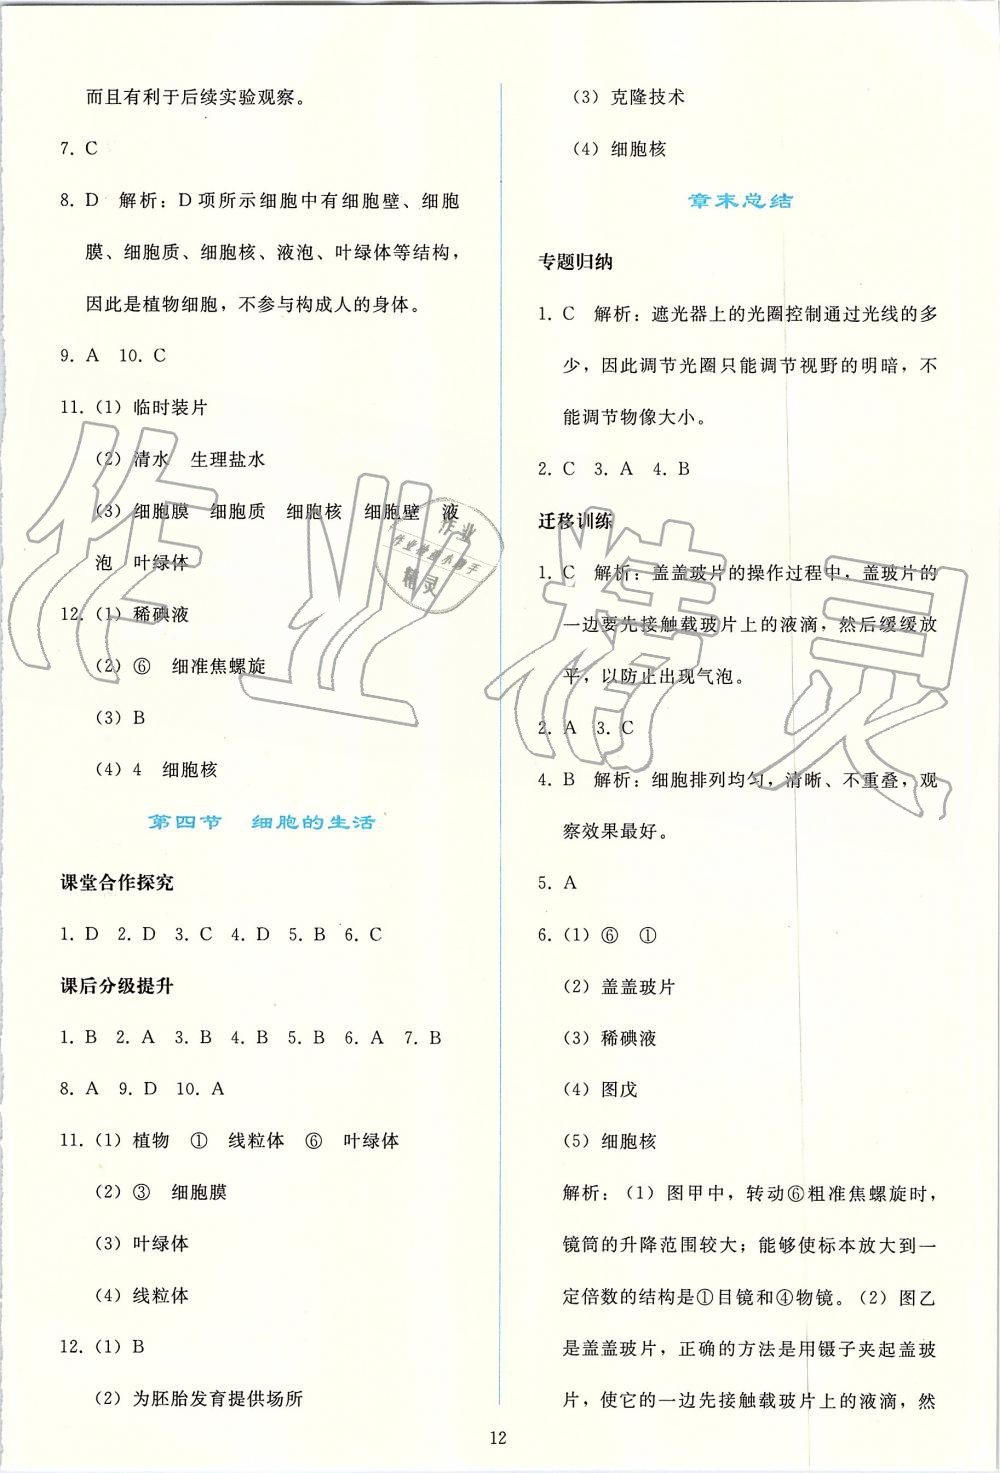 而且有利于后续实验观察。
7. C
8. D 解析：D 项所示细胞中有细胞壁、细胞
膜、细胞质、细胞核、液泡、叶绿体等结构，
因此是植物细胞，不参与构成人的身体。
9. A 10. C
11.（1）临时装片
（2）清水 生理盐水
（3）细胞膜 细胞质 细胞核 细胞壁 液
泡 叶绿体
12.（1）稀碘液
（2）⑥ 细准焦螺旋
（3）B
（4）4 细胞核
第四节 细胞的生活
课堂合作探究
1. D 2. D 3. C 4. D 5. B 6. C
课后分级提升
1. B 2. A 3. B 4. B 5. B 6. A 7. B
8. A 9. D 10. A
11.（1）植物 ① 线粒体 ⑥ 叶绿体
（2）③ 细胞膜
（3）叶绿体
（4）线粒体
12.（1）B
（2）为胚胎发育提供场所
（3）克隆技术
（4）细胞核
章末总结
专题归纳
1. C 解析：遮光器上的光圈控制通过光线的多
少，因此调节光圈只能调节视野的明暗，不
能调节物像大小。
2. C 3. A 4. B
迁移训练
1. C 解析：盖盖玻片的操作过程中，盖玻片的
一边要先接触载玻片上的液滴，然后缓缓放
平，以防止出现气泡。
2. A 3. C
4. B 解析：细胞排列均匀，清晰、不重叠，观
察效果最好。
5. A
6.（1）⑥ ①
（2）盖盖玻片
（3）稀碘液
（4）图戊
（5）细胞核
解析：（1）图甲中，转动⑥粗准焦螺旋时，
镜筒的升降范围较大；能够使标本放大到一
定倍数的结构是①目镜和④物镜。（2）图乙
是盖盖玻片，正确的方法是用镊子夹起盖玻
片，使它的一边先接触载玻片上的液滴，然
12
作业精灵
作业
精灵